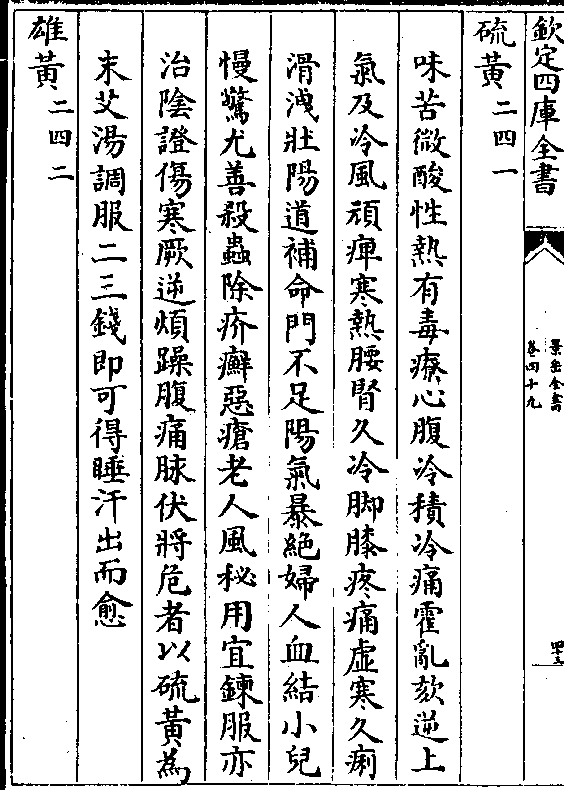 欽定四庫全書
景岳全書
卷四十九
四十三
硫黃二四一
味苦微酸性熱有毒療心腹冷積冷痛霍亂欬逆上
氣及冷風頑痺寒熱腰腎久冷脚膝疼痛虛寒久痢
滑洩壯陽道補命門不足陽氣暴絶婦人血結小兒
慢驚尤善殺蟲除疥癬惡瘡老人風秘用宜鍊服亦
治陰證傷寒厥逆煩躁腹痛脉伏將危者以硫黃為
末艾湯調服二三錢即可得睡汗出而愈
雄黃二四二